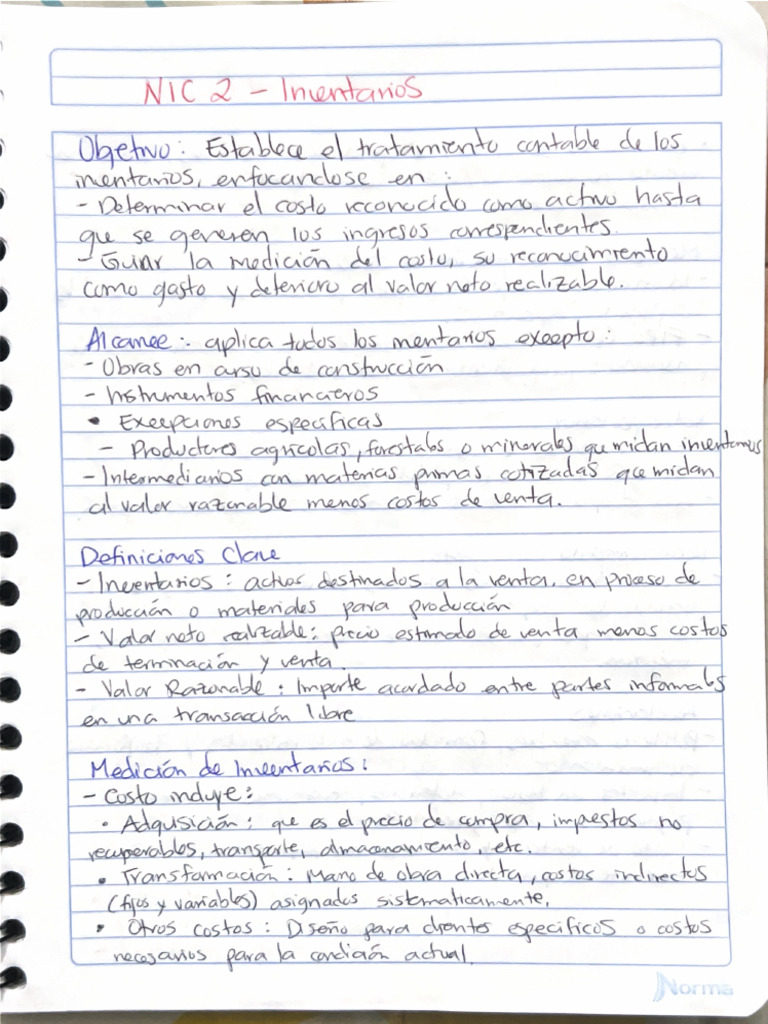 NIC 2 - Inventarios
Objetivo: Establece el tratamiento contable de los
inventarios, enfocandose en :
- Determinar el costo reconocido como activo hasta
que se generen los ingresos correspondientes.
- Guiar la medición del costo, su reconocimiento
como gasto y deterioro al valor neto realizable.
Alcance: aplica todos los inventarios excepto :
- Obras en curso de construcción
- Instrumentos financieros
• Excepciones específicas
- Productores agrícolas, forestales o minerales que midan inventarios
- Intermediarios con materias primas cotizadas que midan
al valor razonable menos costos de venta.
Definiciones Clave
- Inventarios : activos destinados a la venta, en proceso de
producción o materiales para producción
- Valor neto realizable: precio estimado de venta menos costos
de terminación y venta.
- Valor Razonable : Importe acordado entre partes informales
en una transacción libre
Medición de Inventarios:
- Costo incluye:
• Adquisición: que es el precio de compra, impuestos no
recuperables, transporte, almacenamiento, etc.
• Transformación: Mano de obra directa, costos indirectos
(fijos y variables) asignados sistematicamente,
• Otros costos : Diseño para clientes especificos o costos
necesarios para la condición actual.
Norma